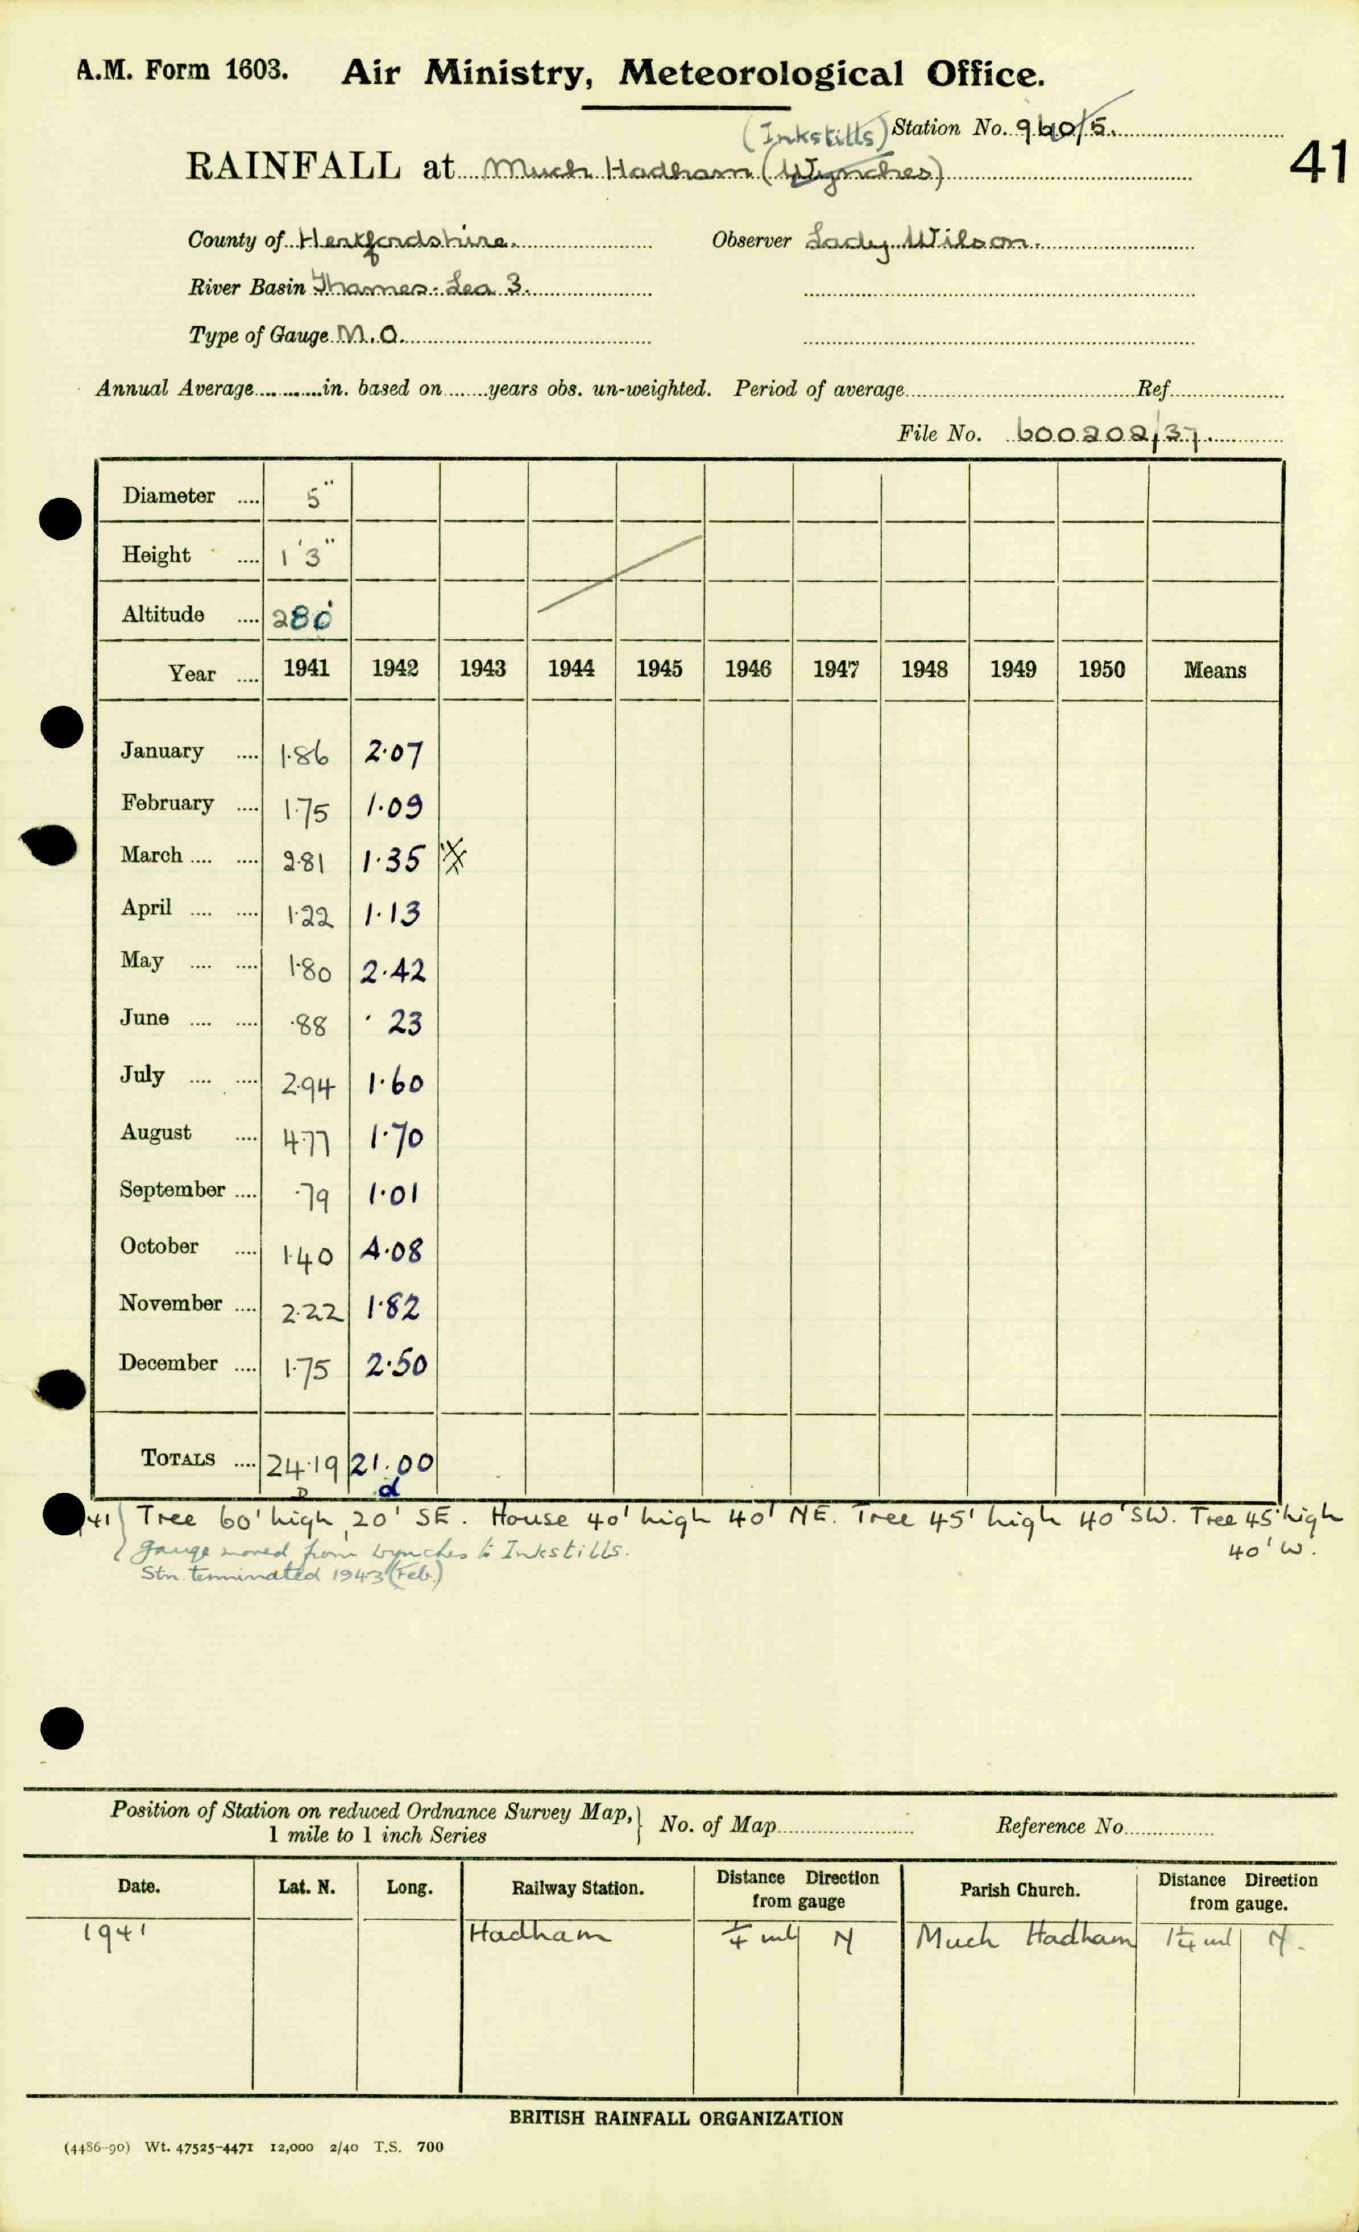 A.M. Form 1603. Air Ministry, Meteorological Office.
(Inkstills) Station No. 960/5.
RAINFALL at Much Hadham (Wynches)
41
County of Hertfordshire. Observer Lady Wilson.
River Basin Thames-Lea 3.
Type of Gauge M.O.
Annual Average............in. based on.......years obs. un-weighted. Period of average............Ref............
File No. 600202/37.
Diameter .... 5"
Height .... 1'3"
Altitude .... 280'
Year .... 1941 1942 1943 1944 1945 1946 1947 1948 1949 1950 Means
January .... 1.86 2.07
February .... 1.75 1.09
March .... .... 2.81 1.35
April .... .... 1.22 1.13
May .... .... 1.80 2.42
June .... .... .88 .23
July .... .... 2.94 1.60
August .... 4.77 1.70
September .... .79 1.01
October .... 1.40 4.08
November .... 2.22 1.82
December .... 1.75 2.50
TOTALS .... 24.19 21.00
d
41 Tree 60' high 20' SE. House 40' high 40' NE. Tree 45' high 40' SW. Tree 45' high
40' W.
gauge moved from Wynches to Inkstills.
Stn. terminated 1943 (Feb.)
Position of Station on reduced Ordnance Survey Map, 1 mile to 1 inch Series } No. of Map............ Reference No............
Date. Lat. N. Long. Railway Station. Distance Direction from gauge Parish Church. Distance Direction from gauge.
1941 Hadham ¼ ml N Much Hadham 1¼ ml N.
BRITISH RAINFALL ORGANIZATION
(4486-90) Wt. 47525-4471 12,000 2/40 T.S. 700